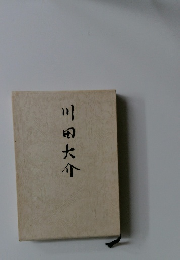 川田大介